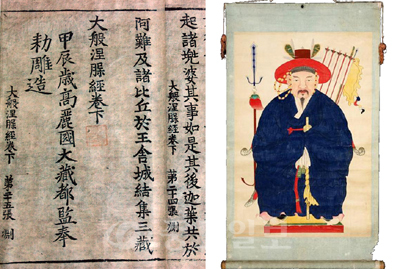 起諸兜婆其事如是其後迦葉共於
大般涅槃經卷下 第二十四張 㓮
阿難及諸比丘於王舍城結集三藏
大般涅槃經卷下
甲辰歲高麗國大藏都監奉
勅雕造
大般涅槃經卷下 第二十五張 㓮
일보